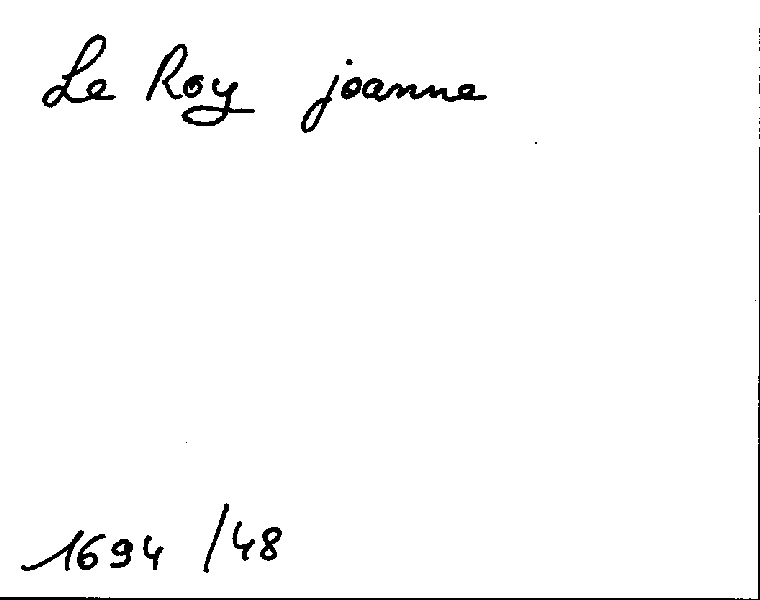 Le Roy joanne
1694 /48